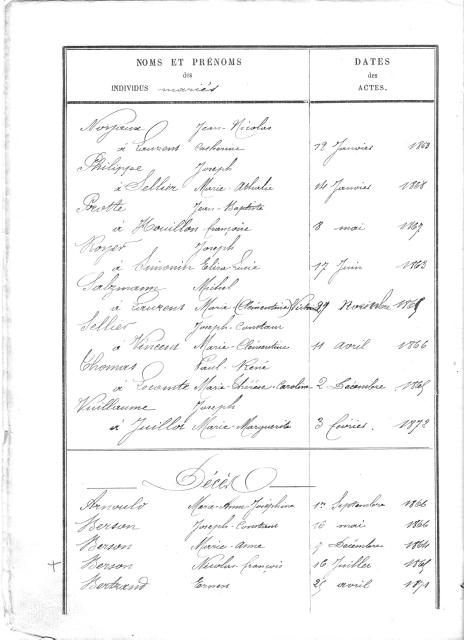 NOMS ET PRÉNOMS
des
INDIVIDUS mariés
DATES
des
ACTES.
Noyaux Jean-Nicolas
à Laurens Catherine 19 Janvier 1863
Philippe Joseph
à Sellier Marie- 14 Janvier 1868
Protte Jean-Baptiste
à Houillon françoise 8 mai
Royer Joseph
à Simonin Elisa Lucie 17 Juin 1863
Salzmann Michel
à Laurens Marie (Clémentine) 29 Novembre
Sellier Joseph-Constant
à Vincent Marie-Clémentine 11 avril 1866
Thomas Paul-René
à Lecomte Marie-Thérèse-Caroline 2 Décembre
Vuillaume Joseph
à Juillot Marie-Marguerite 3 Février. 1872
Décès
Arnould Marie-Anne-Joséphine 1er Septembre 1866
Berson Joseph-Constant 16 mai 1866
Berson Marie-Anne 9 Décembre 1864
+ Berson Nicolas-françois 16 Juillet
Bertrand Ernest 25 avril 1871